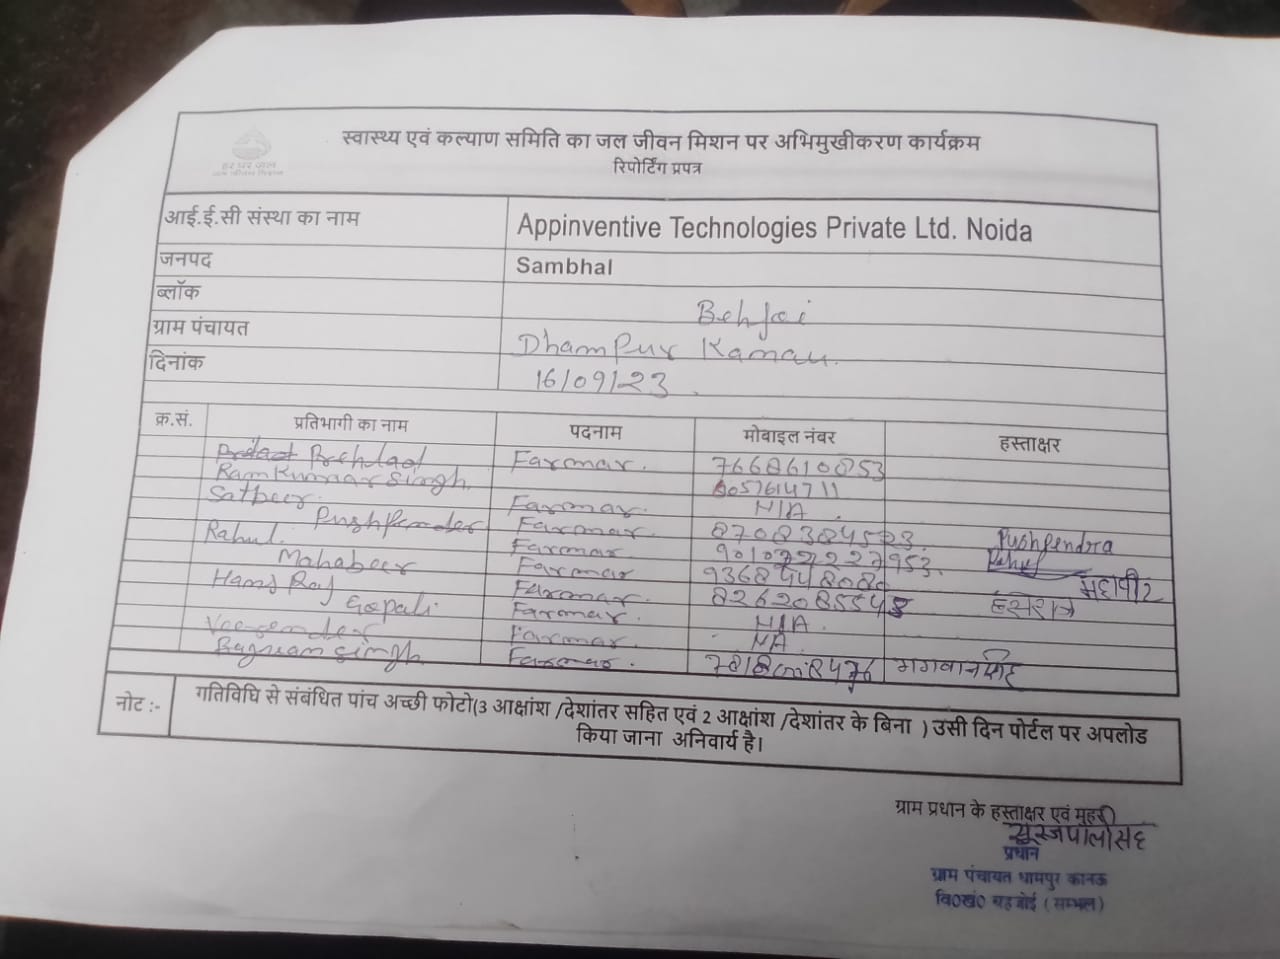 हर घर जल
जल जीवन मिशन
स्वास्थ्य एवं कल्याण समिति का जल जीवन मिशन पर अभिमुखीकरण कार्यक्रम
रिपोर्टिंग प्रपत्र
आई.ई.सी संस्था का नाम Appinventive Technologies Private Ltd. Noida
जनपद Sambhal
ब्लॉक Behjoi
ग्राम पंचायत Dhampur Kanau.
दिनांक 16/09/23.
क्र.सं. प्रतिभागी का नाम पदनाम मोबाइल नंबर हस्ताक्षर
Prehlad Farmar. 7668610853
Ramkumar Singh 8057614711
Satbeer. Farmar. N/A.
Pushpender Farmar. 8708384523 Pushpendra
Rahul. Farmar Rahul
Mahabeer Farmar महावीर
Hans Raj Farmar. हंसराज
Gopali Farmar. N/A.
Veerender Farmar. NA
Bagwan Singh Farmar. भगवान सिंह
नोट :- गतिविधि से संबंधित पांच अच्छी फोटो(3 आक्षांश /देशांतर सहित एवं 2 आक्षांश /देशांतर के बिना ) उसी दिन पोर्टल पर अपलोड
किया जाना अनिवार्य है।
ग्राम प्रधान के हस्ताक्षर एवं मुहर
सूरजपालसिंह
प्रधान
ग्राम पंचायत धामपुर कानऊ
वि०खं० बहजोई (सम्भल)